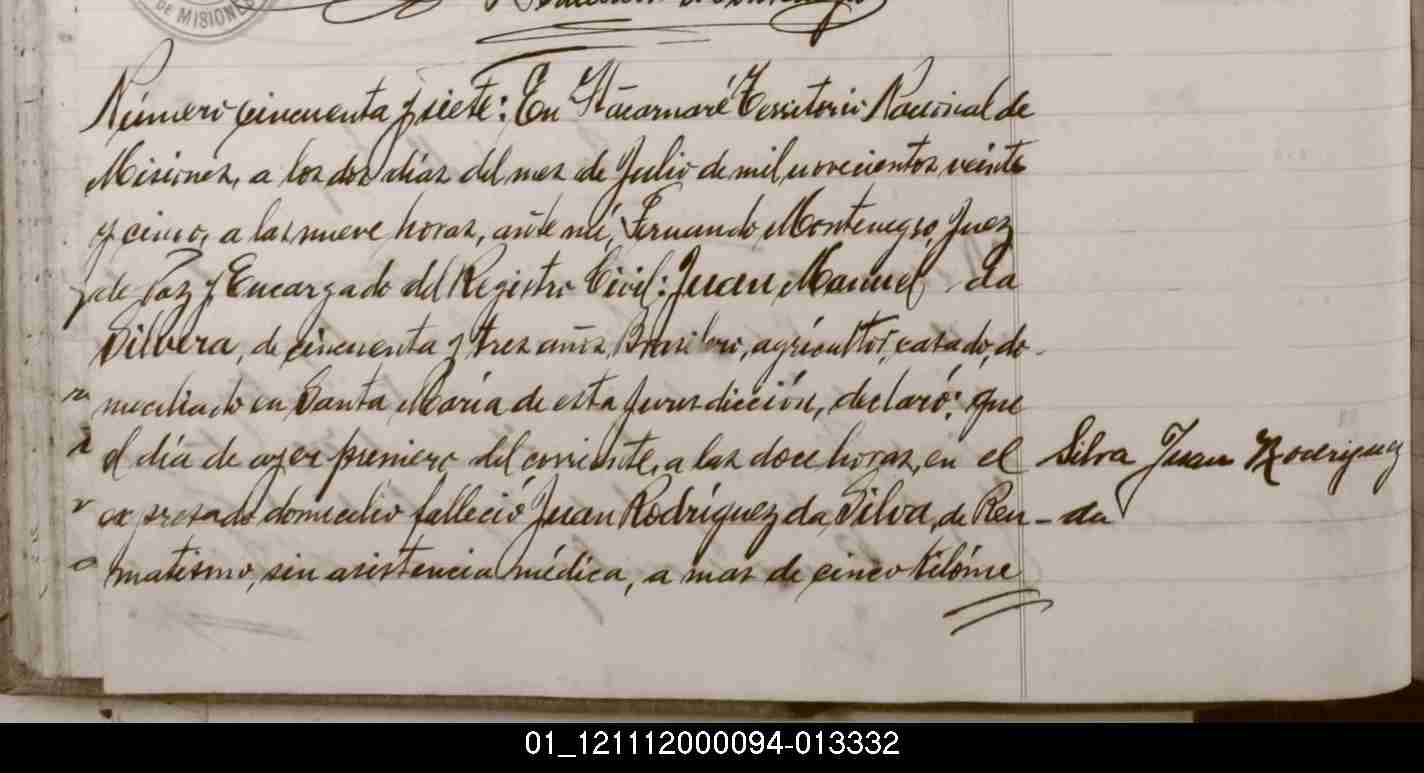 DE MISIONES
Número cincuenta y siete: En Itacaruaré Territorio Nacional de
Misiones, a los dos días del mes de Julio de mil novecientos veinte
y cinco, a las nueve horas, ante mí, Fernando Montenegro, Juez
de Paz y Encargado del Registro Civil: Juan Manuel da
Silvera, de cincuenta y tres años, Brasilero, agricultor, casado, do-
meciliado en Santa María de esta Jurisdicción, declaró: que
el día de ayer primero del corriente, a las doce horas, en el
expresado domicilio falleció Juan Rodríguez da Silva, de Reu-
matismo, sin asistencia médica, a mas de cinco Kilóme
Silva Juan Rodriguez
da
01_121112000094-013332